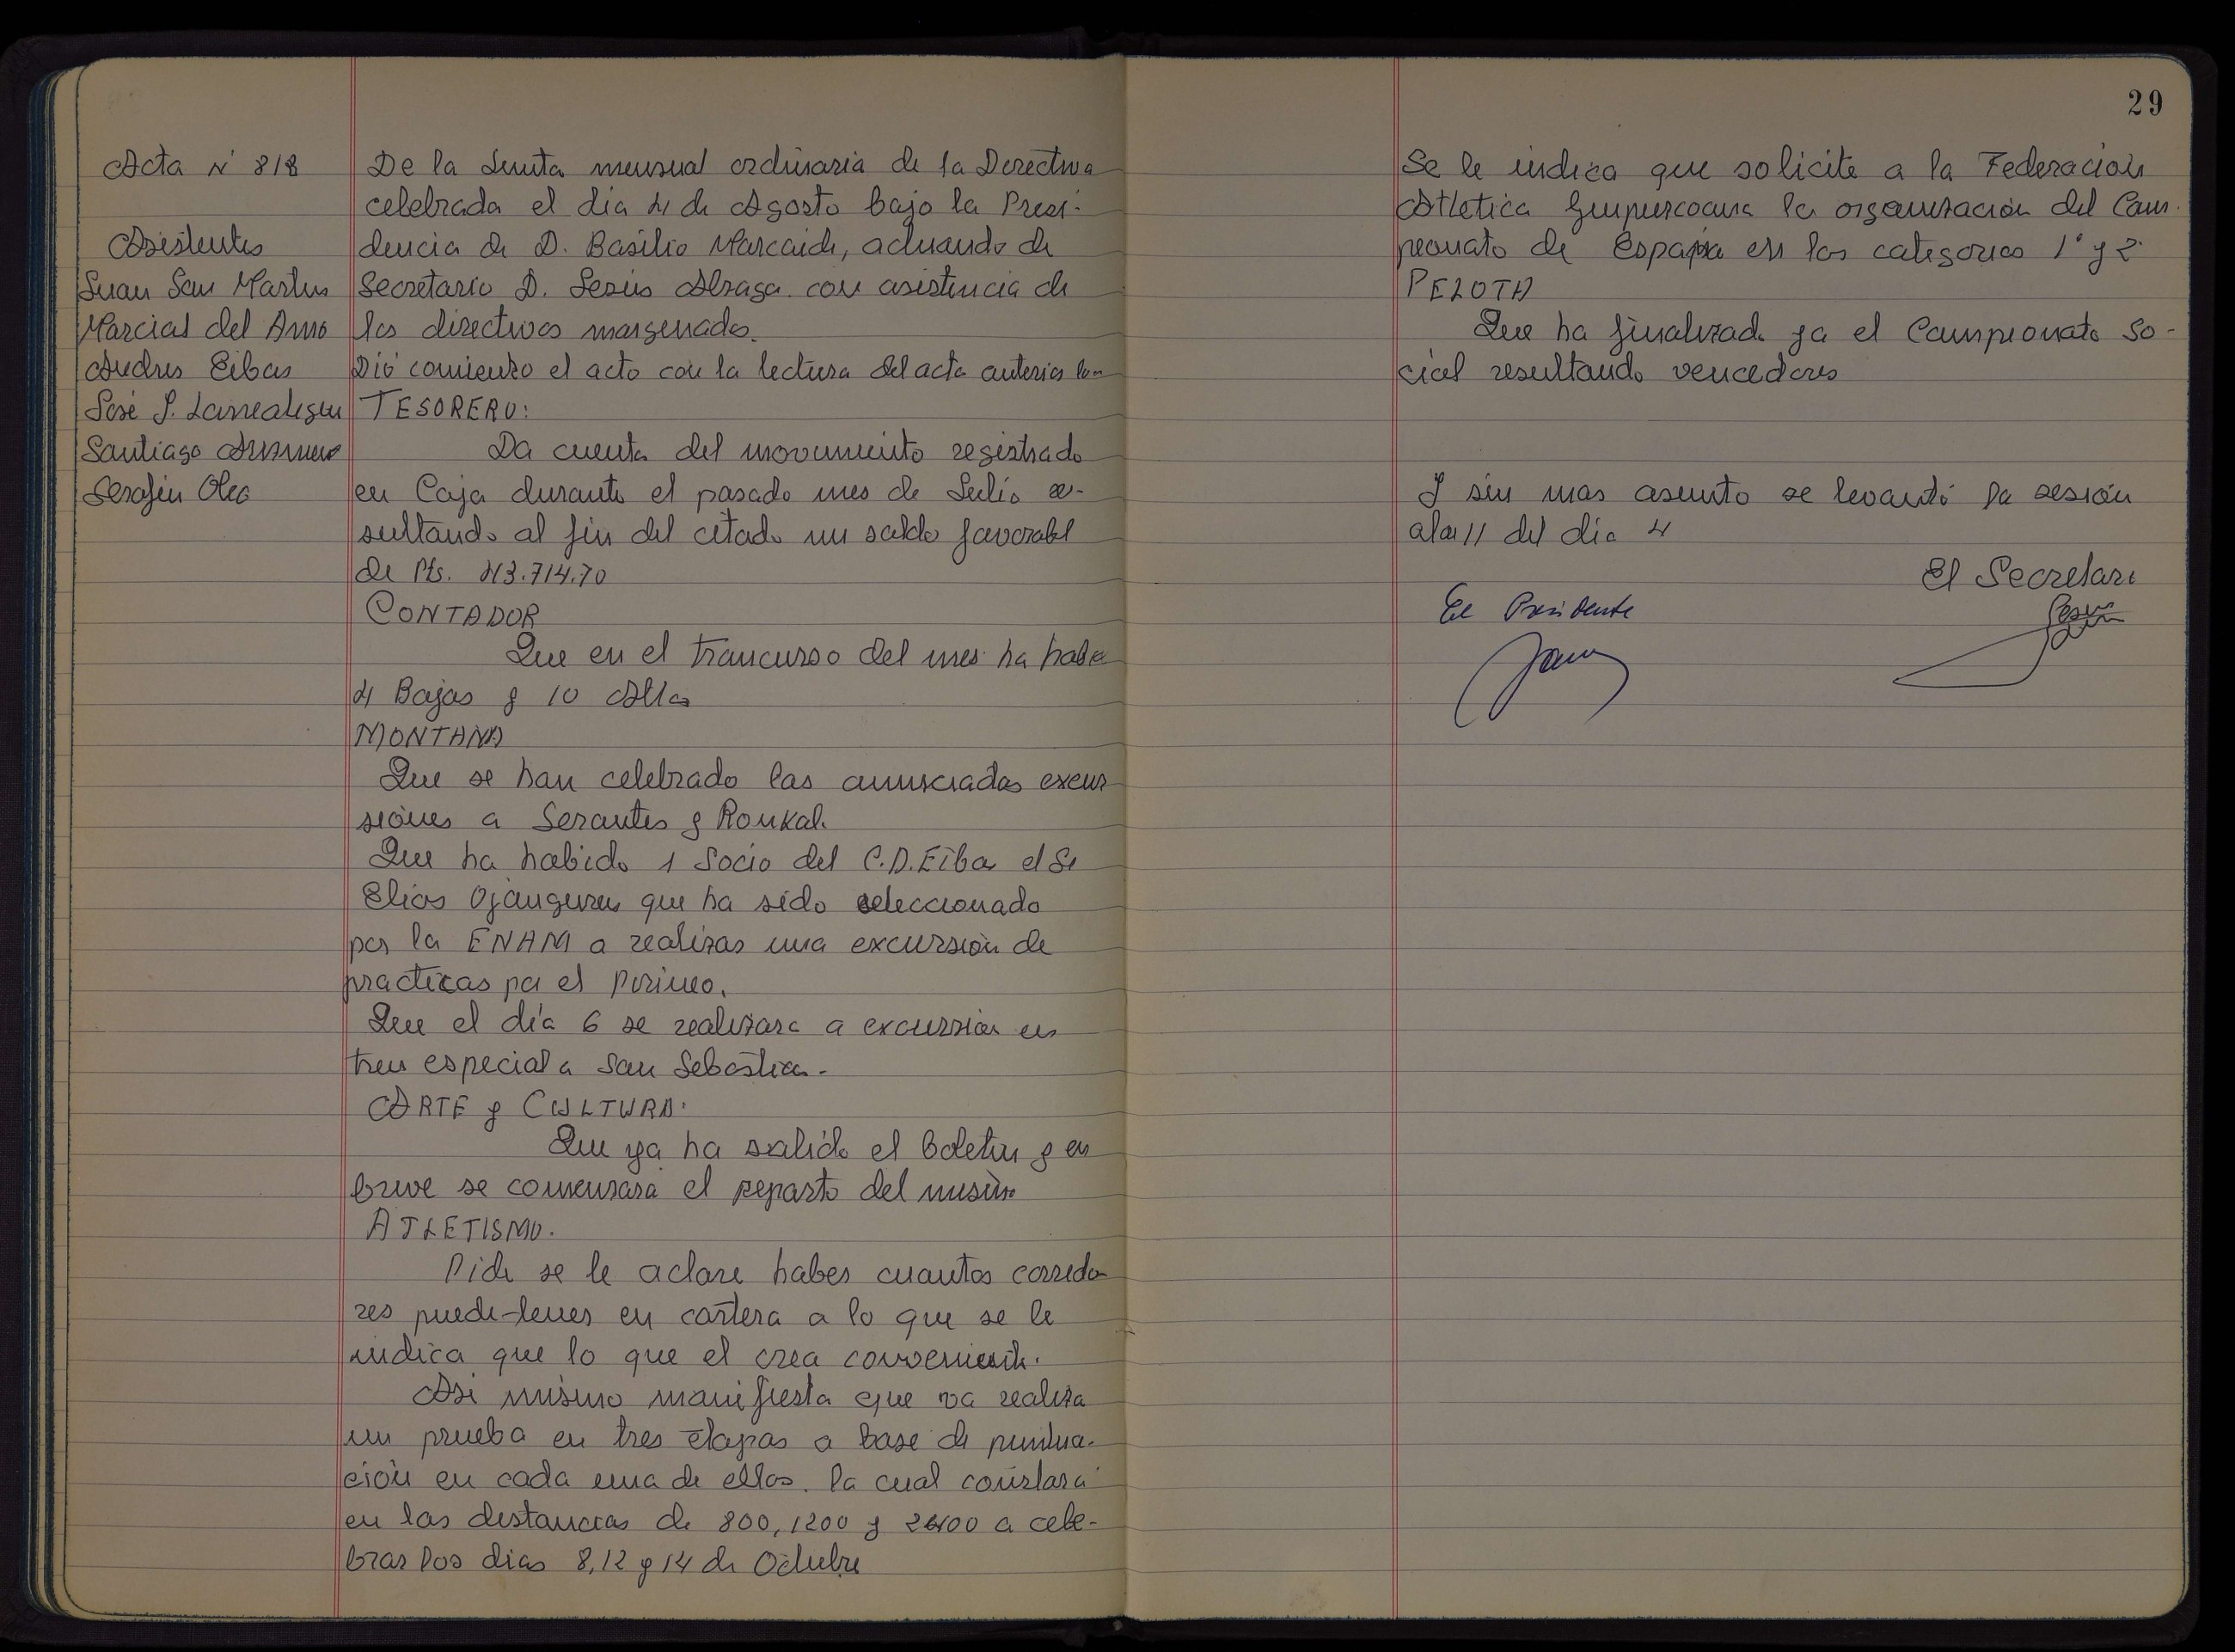 Acta N° 818
Asistentes
Juan San Martin
Marcial del Amo
Andres Eibar
José J. Larreategui
Santiago
Serafin Olea
De la Junta mensual ordinaria de la Derectiva
celebrada el dia 4 de Agosto bajo la Presi-
dencia de D. Basilio Marcaide, actuando de
Secretario D. Jesús Alzaga con asistencia de
los directivos margenados.
Dió comienzo el acto con la lectura del acta anterior
TESORERO:
Da cuenta del movimiento registrado
en Caja durante el pasado mes de Julio re-
sultando al fin del citado un saldo favorabl
de Pts. 43.714.70
CONTADOR
Que en el trancurso del mes ha habid
4 Bajas y 10 Altas
MONTAÑA
Que se han celebrado las anunciadas excur
siones a Serantes y Ronkal.
Que ha habido 1 Socio del C.D. Eibar el Sr
Elias Ojanguren que ha sido seleccionado
por la ENAM a realizar una excursión de
practicas por el Pirineo.
Que el día 6 se realizara a excursion en
tren especial a San Sebastian.
ARTE y CULTURA.
Que ya ha salido el boletin y en
breve se comenzara el reparto del mismo
ATLETISMO.
Pide se le aclare haber cuantos corredo
res puede tener en cartera a lo que se le
indica que lo que el crea conveniente.
Asi mismo manifiesta que va realiza
un prueba en tres etapas a base de puntua-
ción en cada una de ellas. la cual constara
en las distancias de 800, 1200 y 2400 a cele-
brar los dias 8, 12 y 14 de Octubre
29
Se le indica que solicite a la Federación
Atletica Guipuzcoana la organización del Cam-
peonato de España en las categorias 1ª y 2ª
PELOTA
Que ha finalizado ya el Campeonato So-
cial resultando vencedores
Y sin mas asunto se levantó la sesión
a las 11 del dia 4
El Secretari
El Presidente